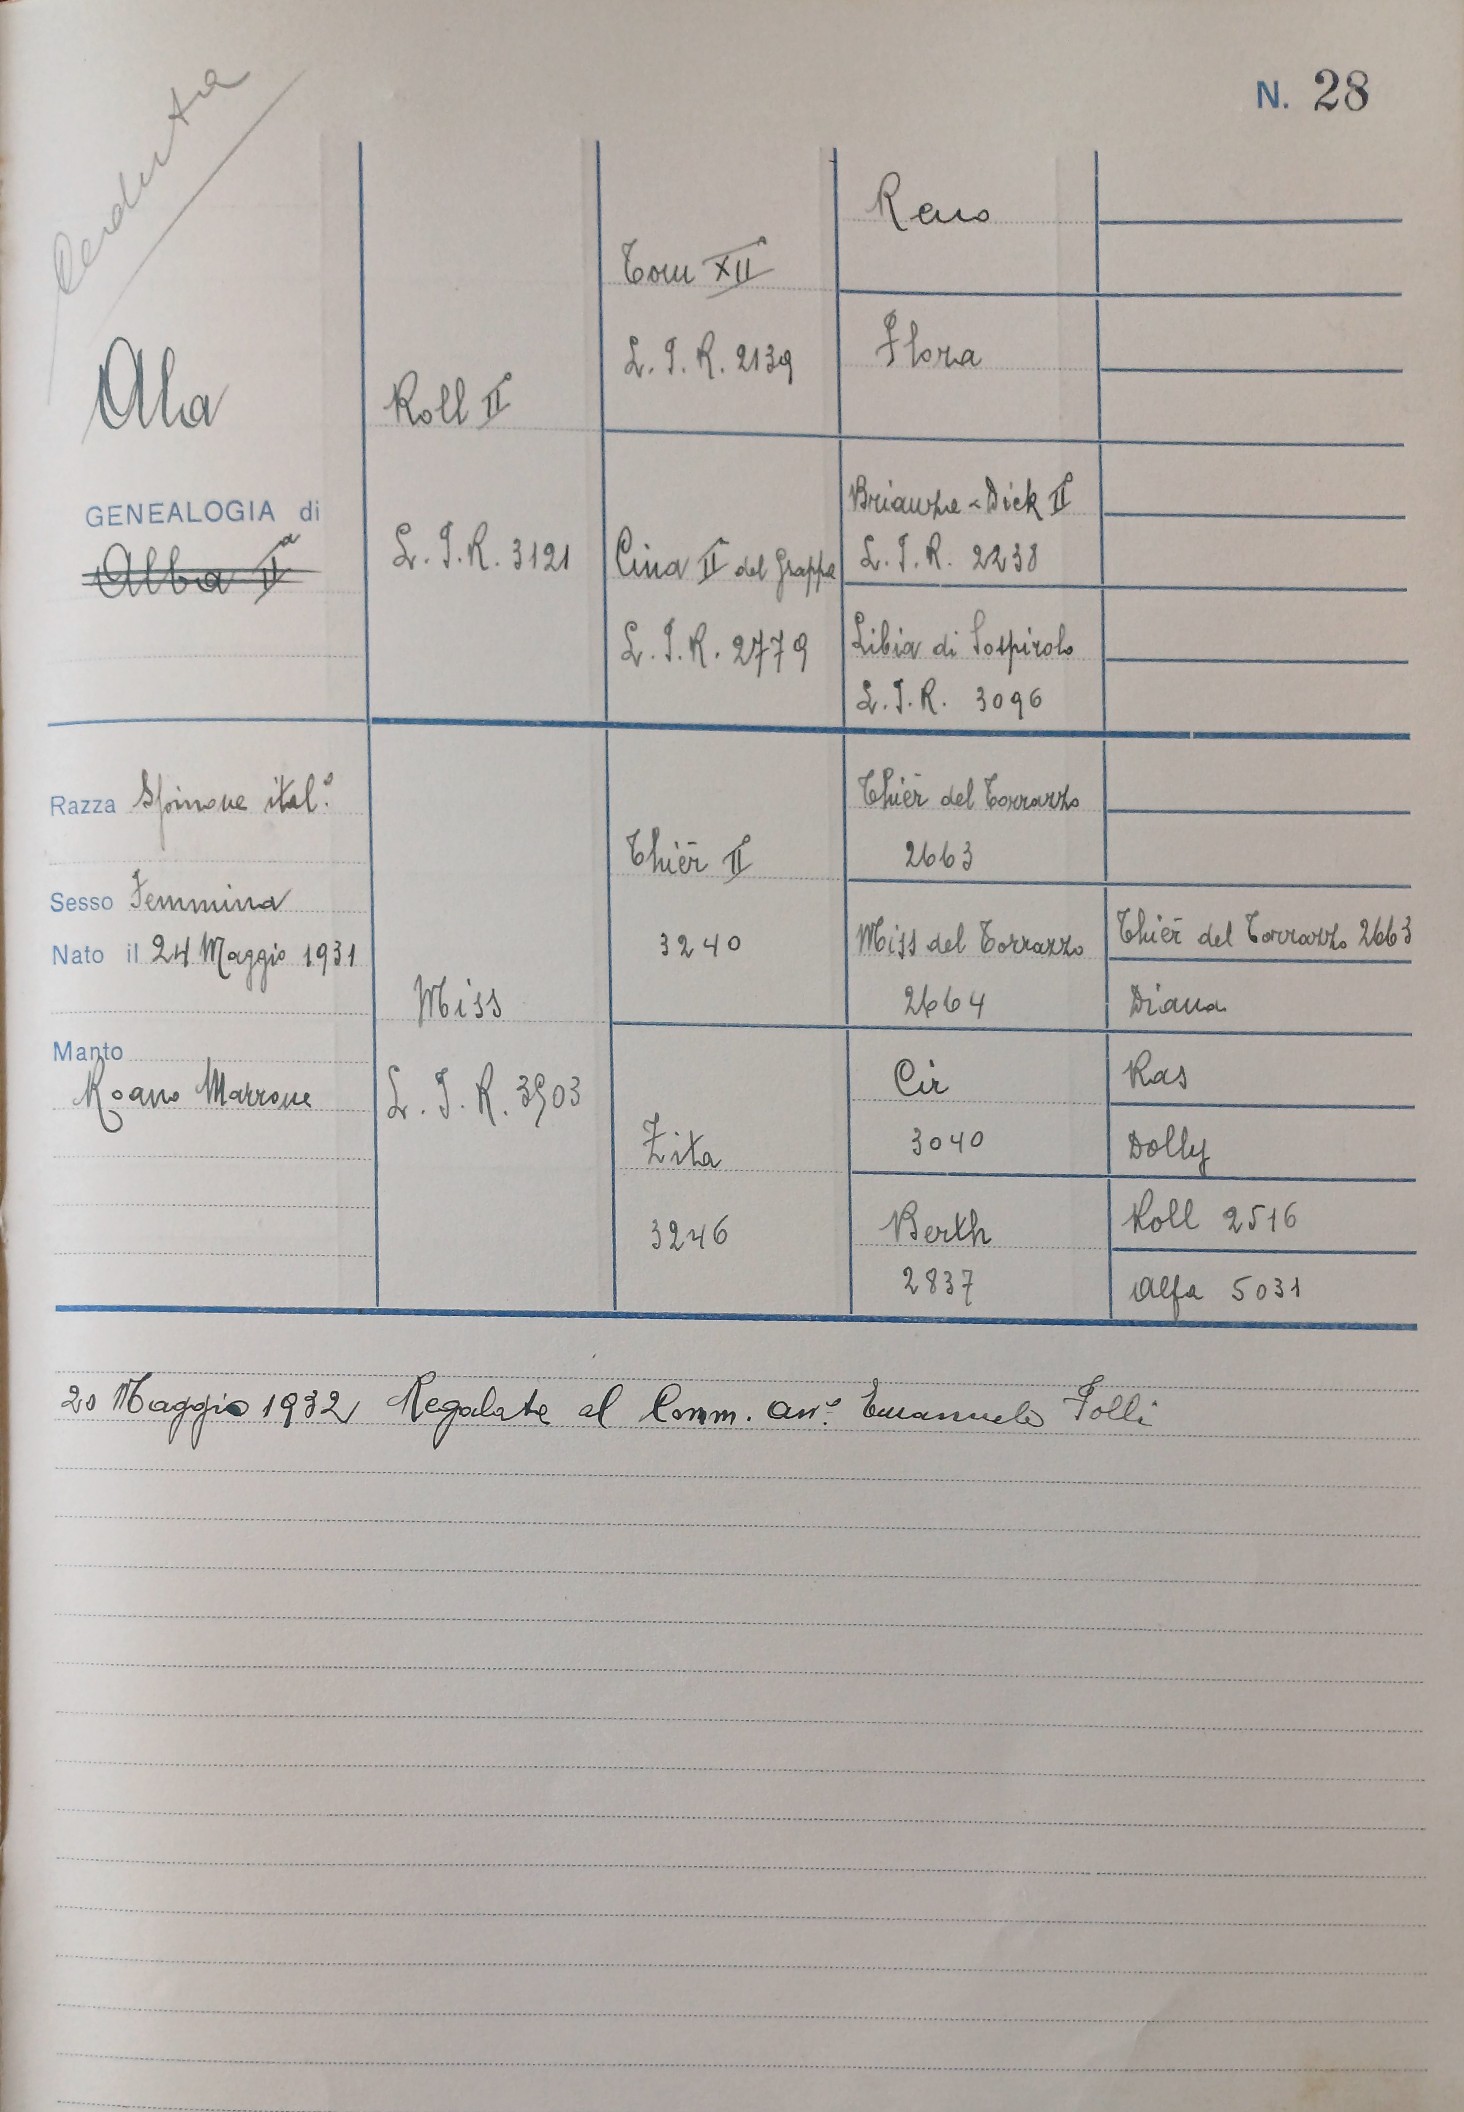 N. 28
Ala
GENEALOGIA di
Alba IIª
Razza Spinone ital.º
Sesso Femmina
Nato il 24 Maggio 1931
Manto
Roano Marrone
Roll IIº
L. I. R. 3121
Miss
L. I. R. 3903
Tom XIIº
L. I. R. 2139
Cina II del Grappa
L. I. R. 2779
Thiër II
3240
Zita
3246
Reno
Flora
Brianza - Dick II
L. I. R. 2238
Libia di Sospirolo
L. I. R. 3096
Thiër del Torrazzo
2663
Miss del Torrazzo
2664
Cir
3040
Berth
2837
Thiër del Torrazzo 2663
Diana
Ras
Dolly
Roll 2516
Alfa 5031
20 Maggio 1932 Regalata al Comm. avv.º Emanuele Folli